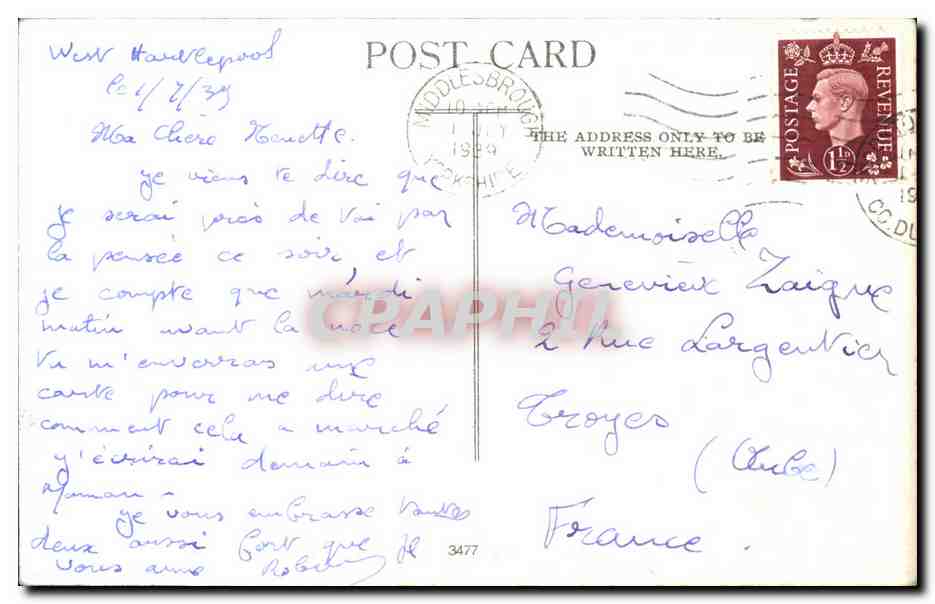 West Hartlepool
le 1/7/39
Ma Chère Nenette.
je viens te dire que
je serai près de toi par
la pensée ce soir et
je compte que mardi
matin avant la noce
tu m'enverras une
carte pour me dire
comment cela a marché
j'écrirai demain à
Maman.
je vous embrasse toutes
deux aussi fort que je
vous aime
POST CARD
MIDDLESBROUGH
1 JLY
1939
YORKSHIRE
THE ADDRESS ONLY TO BE
WRITTEN HERE.
POSTAGE
REVENUE
1½D
CO. DU
Mademoiselle
Geneviève Zaigue
2 Rue Largentier
Troyes
(Aube)
France.
3477
CPAPHIL